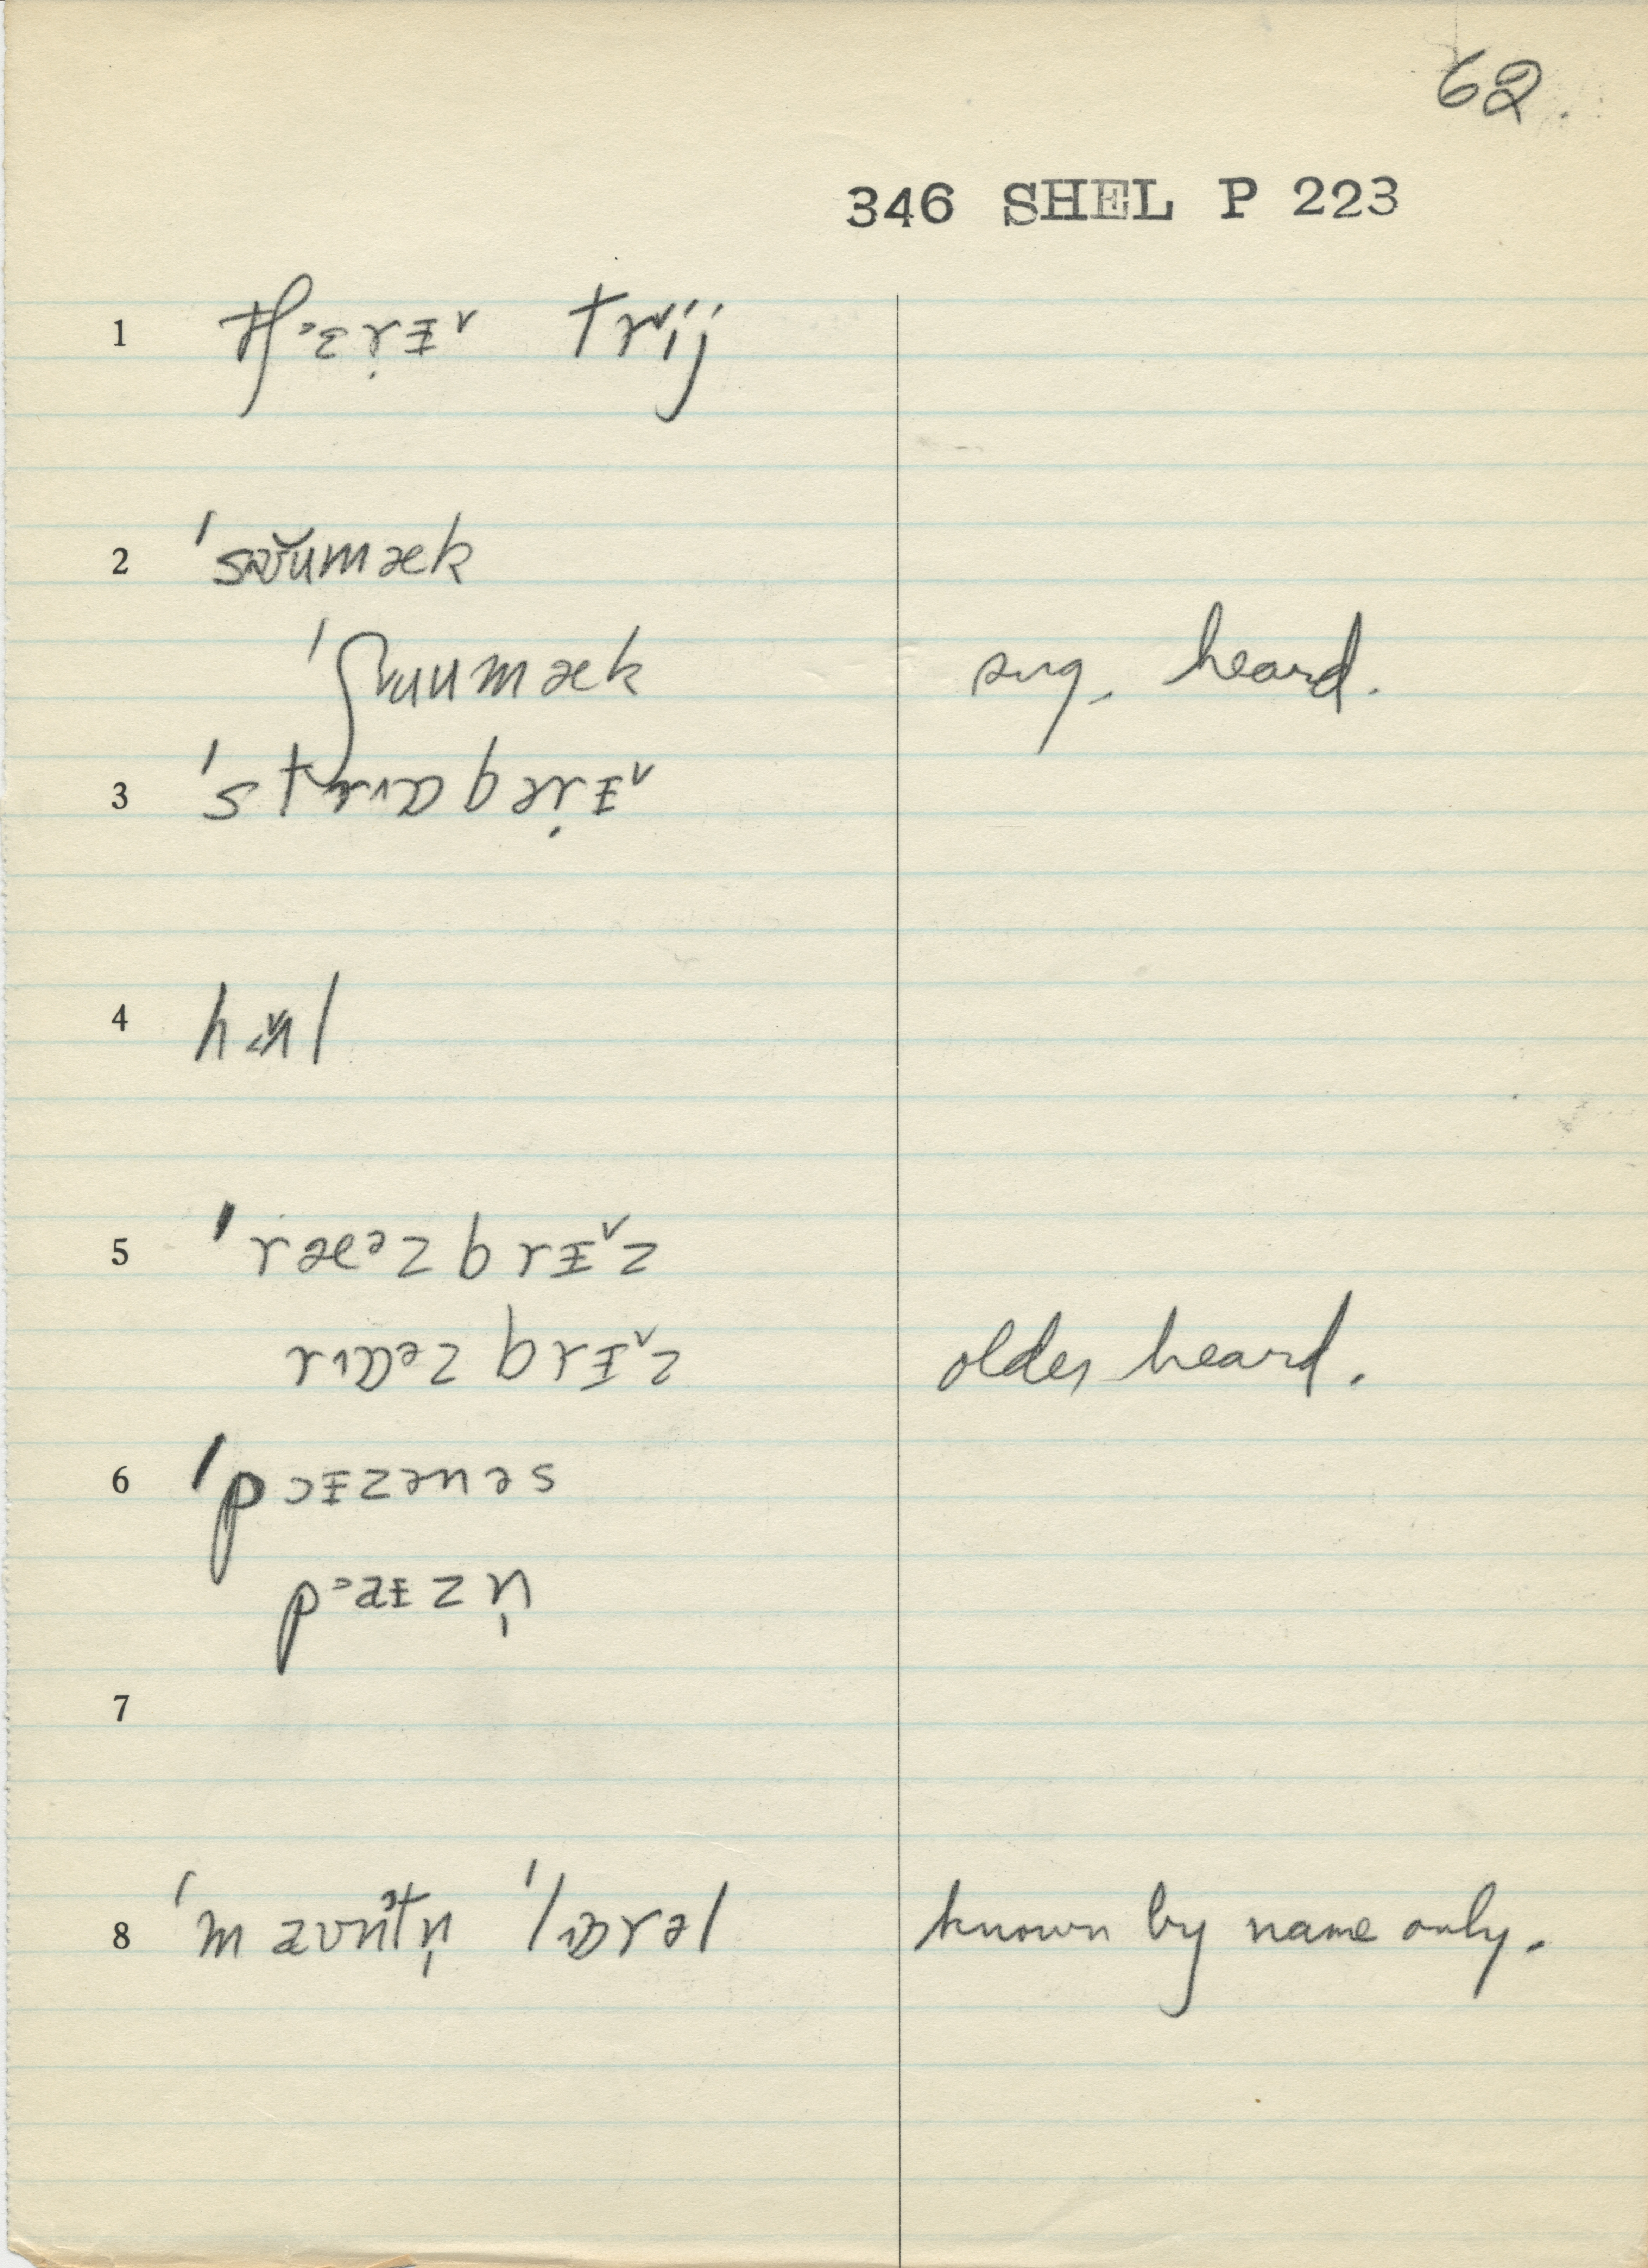 62.
346 SHEL P 223
1 tʃᵊɛṛɪ̵˅ trij
2 ˈsəʊ̆umæk
ˈʃuumæk sug. heard.
3 ˈstrɒbəṛɪ̵˅
4
5 ˈræᵊzbrɪ̵˅z
rɒᵊzbrɪ̵˅z older heard.
6 ˈpɔɪ̵zənəs
pᵊəɪ̵zn̩
7
8 ˈmaʊntn̩ ˈlɒrəl known by name only.